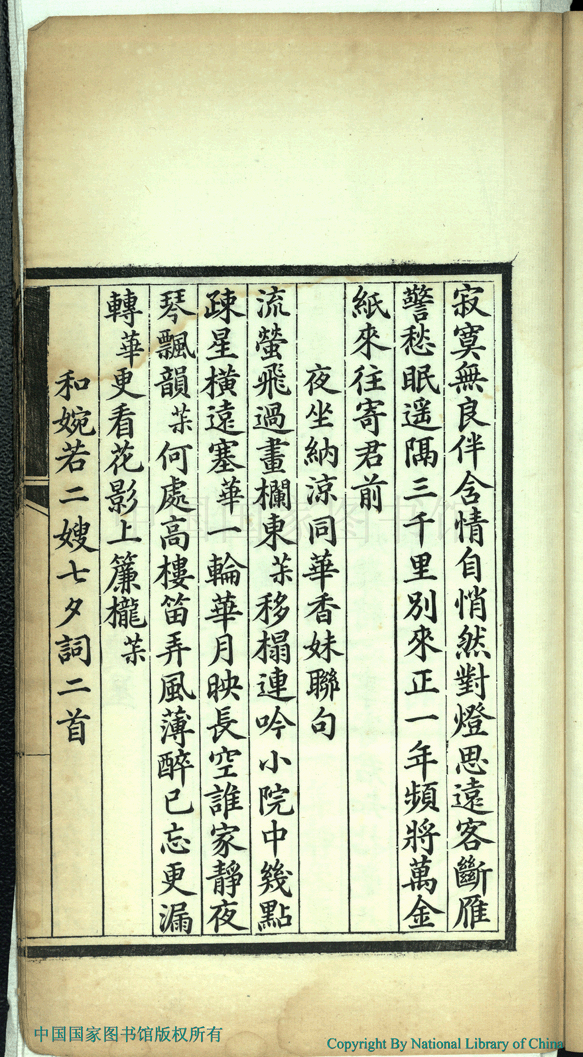 寂寞無良伴含情自悄然對燈思遠客斷雁
警愁眠遥隔三千里別來正一年頻將萬金
紙來往寄君前
夜坐納涼同華香妹聯句
流螢飛過畫欄東茶移榻連吟小院中幾點
疎星橫遠塞華一輪華月映長空誰家靜夜
琴飄韻茶何處高樓笛弄風薄醉已忘更漏
轉華更看花影上簾櫳茶
和婉若二嫂七夕詞二首
中国国家图书馆
中国国家图书馆版权所有
Copyright By National Library of China